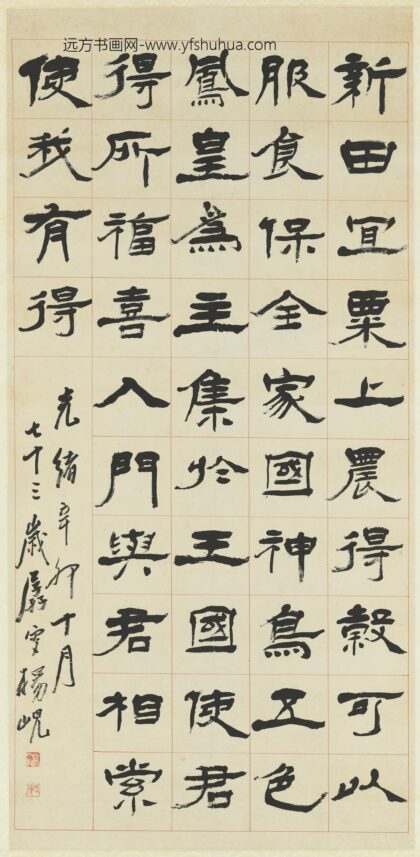 远方书画网-www.yfshuhua.com
新田宜粟上農得穀可以
服食保全家國神鳥五色
鳳皇爲主集於王國使君
得所福喜入門與君相索
使我有得
光緒辛卯十月
七十三歲楊峴